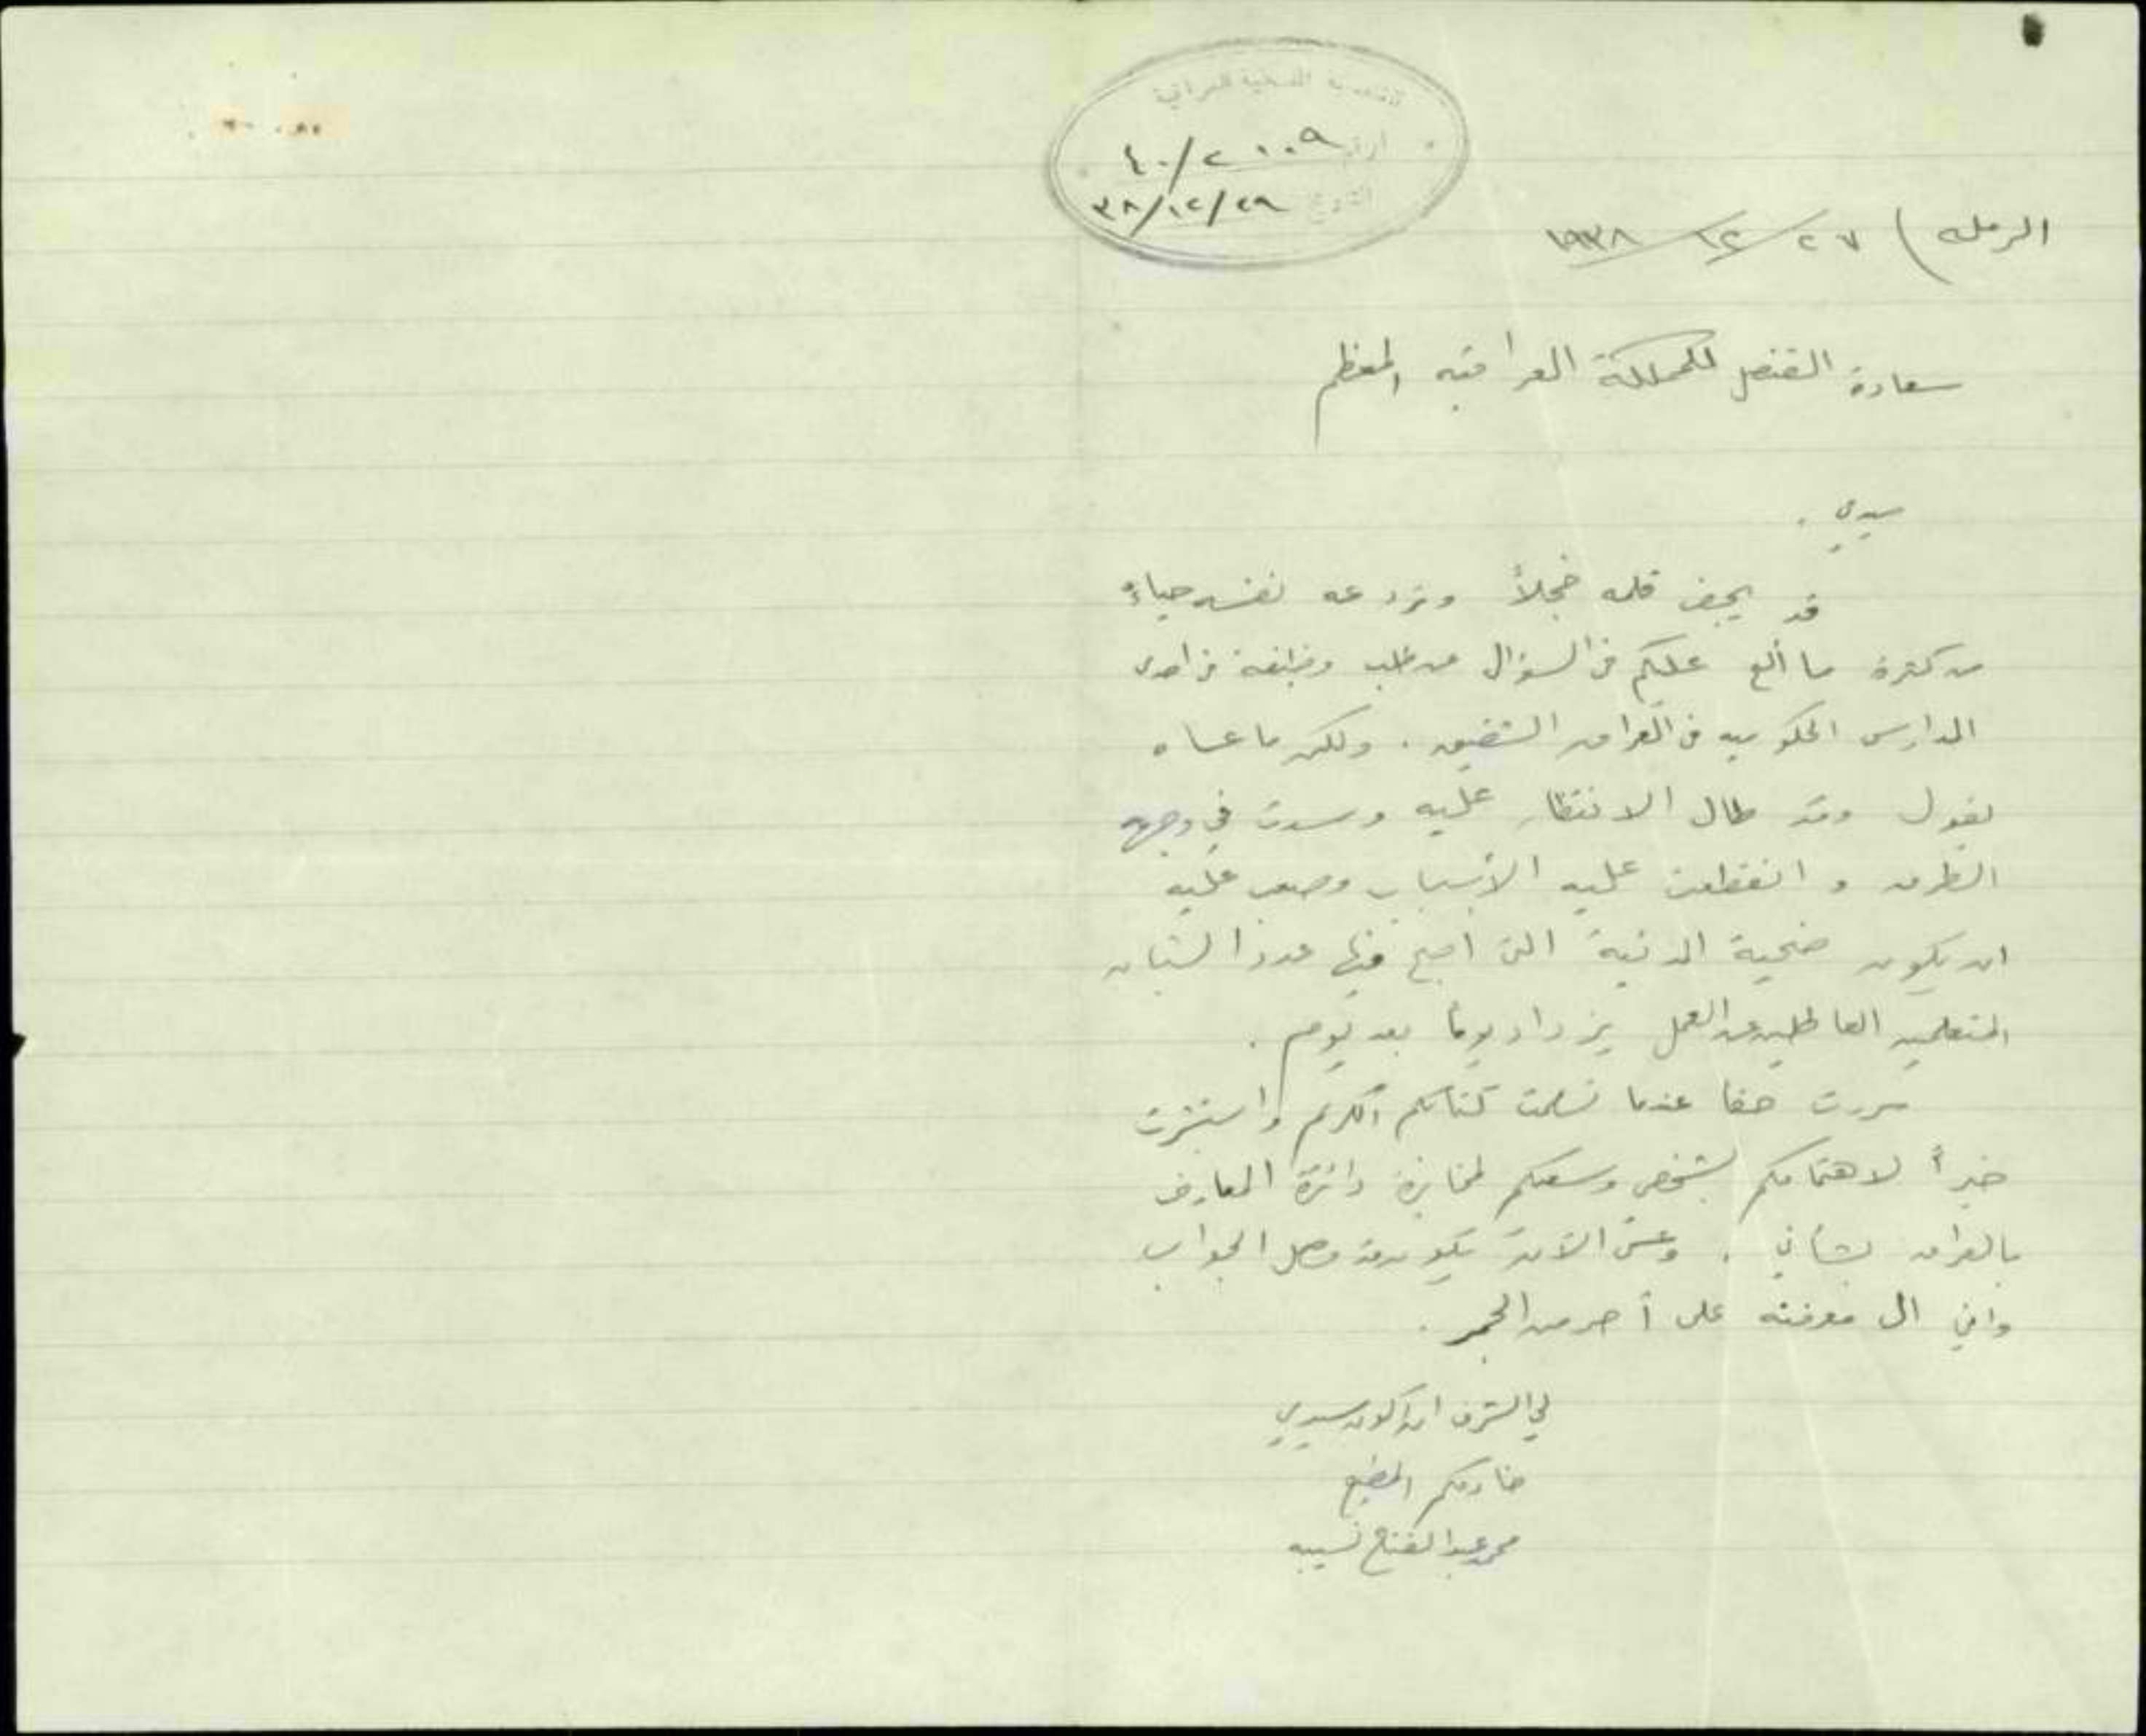 القنصلية الملكية العراقية
الرقم ٤٠/٢ ١٠٠٩
التاريخ ٣٨/١٢/٢٩
الرمله ) ٢٧ / ١٢ / ١٩٣٨
سعادة القنصل للمملكة العراقيه المعظم
سيدي .
قد يجف قلمه خجلاً وتردعه نفسه حياءً
من كثرة ما ألح عليكم في السؤال من طلب وظيفة في احدى
المدارس الحكوميه في العراق الشقيق . ولكن ما عساه
يقول وقد طال الانتظار عليه وسدت في وجهه
الطرق و انقطعت عليه الأسباب وصعب عليه
ان يكون ضحية المدنية التي اصبح فيها عدد الشبان
المتعلمين العاطلين عن العمل يزداد يوما بعد يوم .
سررت حقا عندما تسلمت كتابكم الكريم واستبشرت
خيراً لاهتمامكم بشخصي وسعيكم لمخابرة دائرة المعارف
بالعراق بشأني . وعسى الآن يكون قد وصل الجواب
واني الى معرفته على أحر من الجمر .
لي الشرف ان اكون سيدي
خادمكم المطيع
محمد عبد الفتاح نسيبه